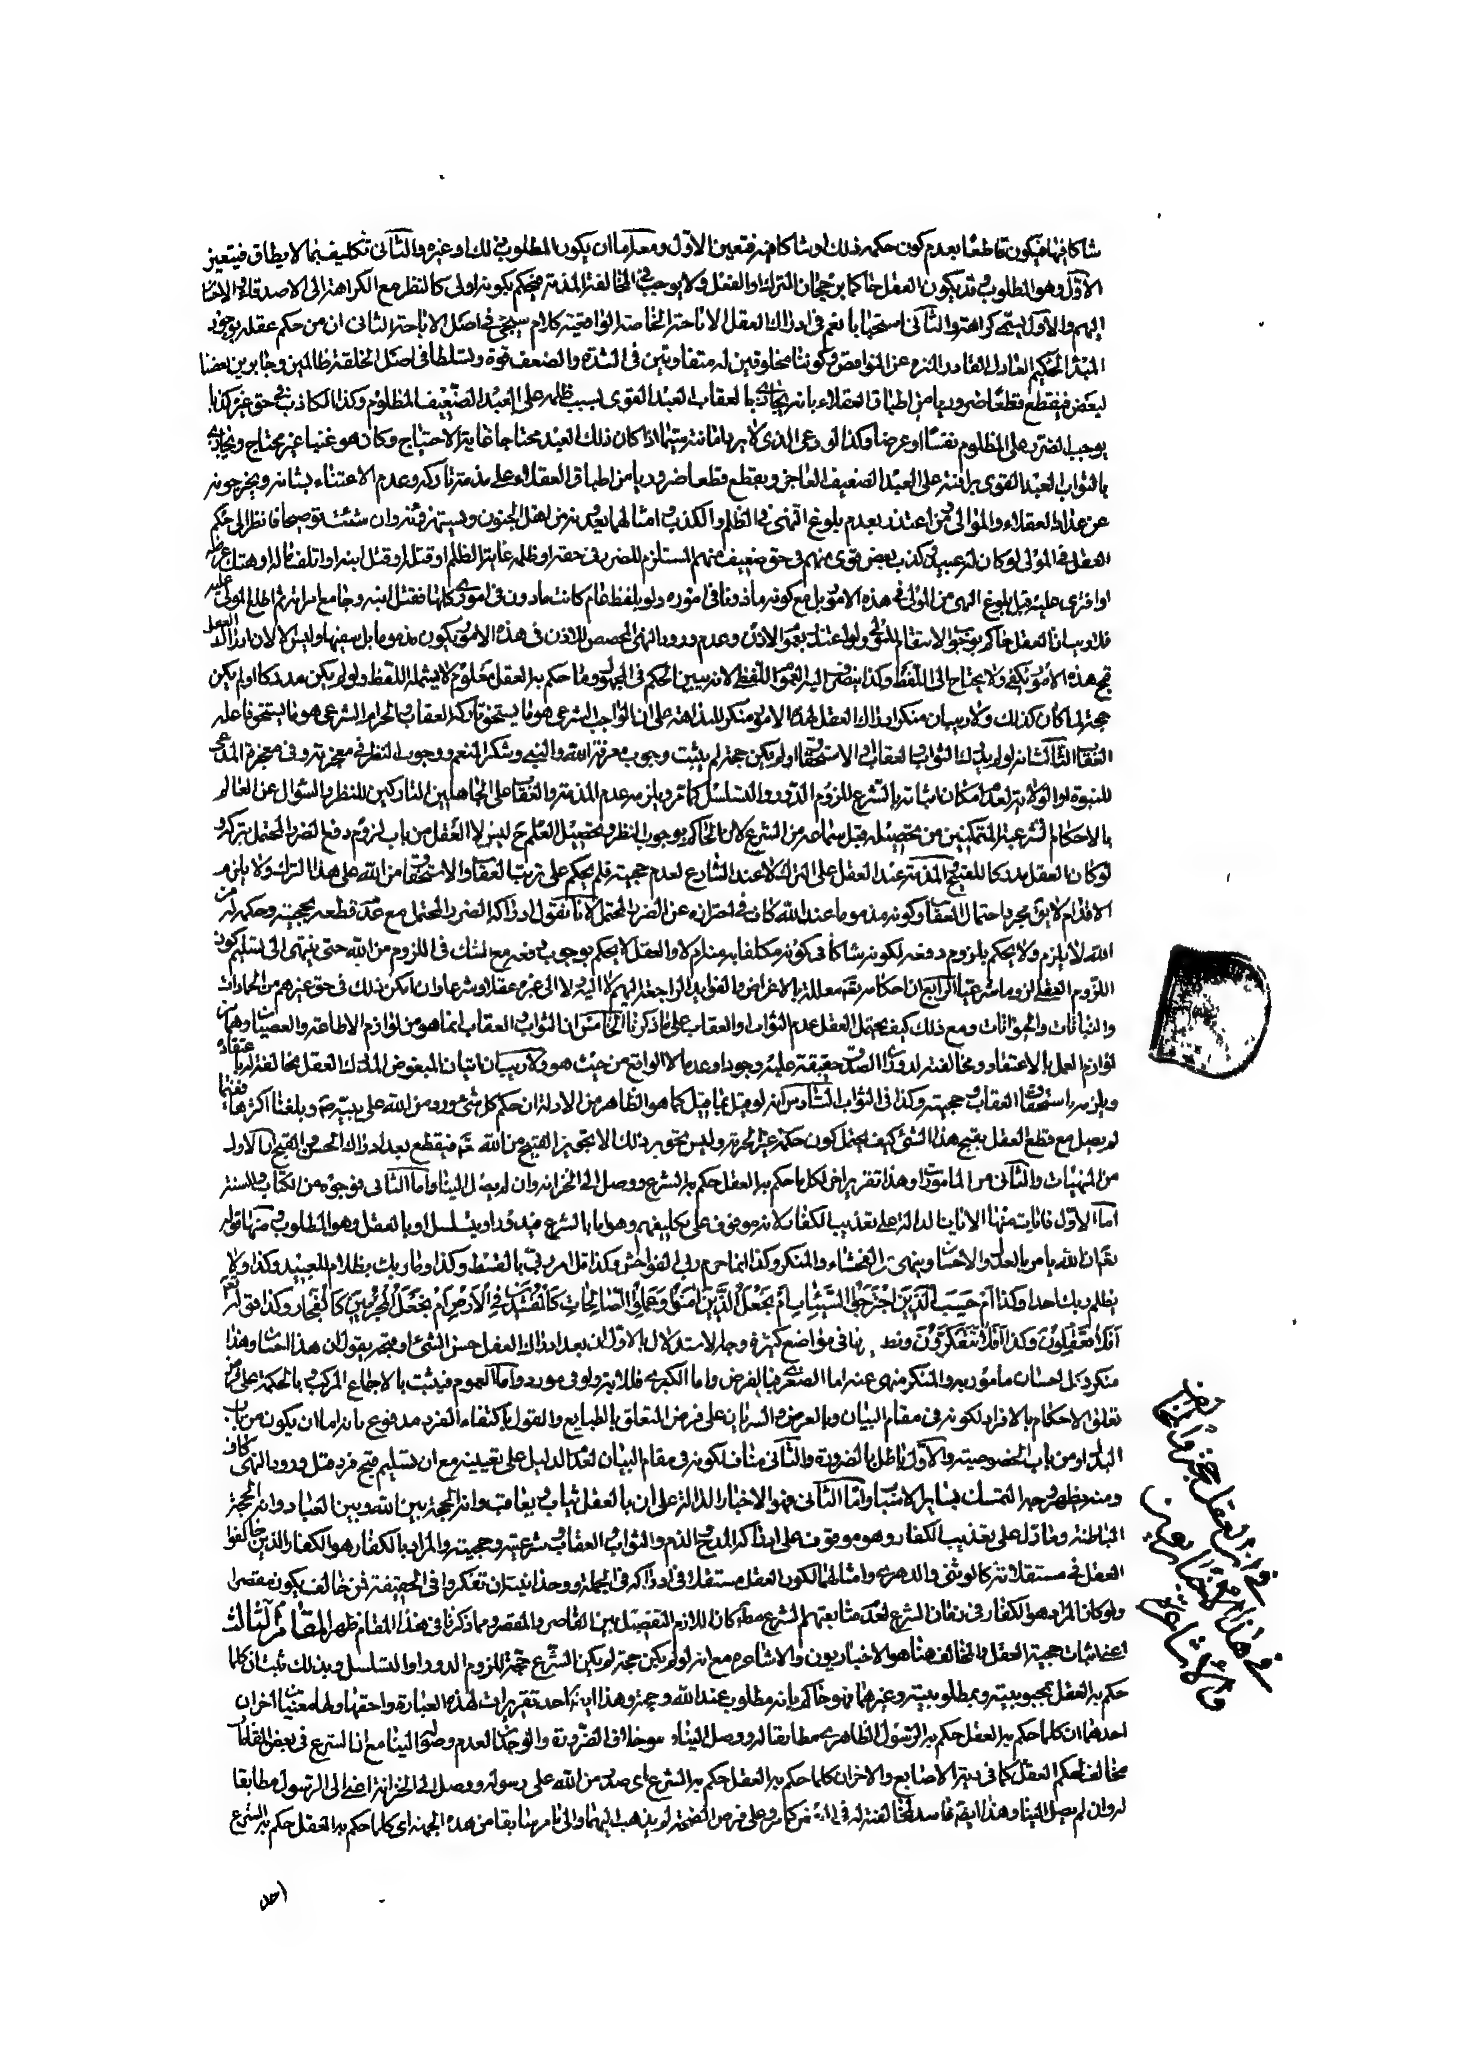 شاكا فيها فيكون قاطعا بعدم كون حكمه ذلك او شاكا فيه فتعين الاول ومعه اما ان يكون المطلوب ذلك او غيره والثاني تكليف بما لا يطاق فيتعين
الاول وهو المطلوب وقد يكون العقل حاكما برجحان الترك او الفعل ولا يوجب في المخالفة المذمة فيحكم بكونه اولى كالنظر مع الكراهة الى الاصدقاء
اليهم والاول يسمى كراهة والثاني استحبابا نعم في ادراك العقل الاباحة الخاصة الواقعية كلام سيجئ في اصل الاباحة الثاني ان من حكم عقله بوجود
المبدء الحكيم العادل القادر المنزه عن النواقص وكوننا مخلوقين له متفاوتين في الشدة والضعف قوة وتسلطا في اصل الخلقة ظالمين وجابرين بعضنا
لبعض فيقطع قطعا ضروريا من اطباق العقلاء بانه يجازي بالعقاب العبد القوي بسبب ظلمه على العبد الضعيف المظلوم وكذا الكاذب في حق غيره كذبا
يوجب الضرر على المظلوم نفسا او عرضا وكذا الودعي الذي لا يرد امانته سيما اذا كان ذلك العبد محتاجا غاية الاحتياج وكان هو غنيا غير محتاج ويجازي
بالثواب العبد القوي برافته على العبد الضعيف العاجز ويقطع قطعا ضروريا من اطباق العقلاء على مذمة تاركه وعدم الاعتناء بشانه ويخرجونه
عن عداد العقلاء والموالي من اعتذر بعدم بلوغ النهي في الظلم والكذب وامثالهما يعدونه من اهل الجنون ويستهزؤنه وان شئت توضيحا فانظر الى حكم
العقل في المولى لو كان له عبيد كذب بعض قوي منهم في حق ضعيف منهم المستلزم للضرر في حقه او ظلمه غاية الظلم او قتله او قتل ابنه او اتلف ماله او هتك عرضه
او افترى عليه قبل بلوغ النهي من المولى في هذه الامور بل مع كونه ماذونا في اموره ولو بلفظ عام كانت مادون في اموري كلها فقتل ابنه وجامع امراته ثم اطلع المولى عليه
فلا ريب ان العقل حاكم بوجوب الانتقام للمولى ولو اعتذر بعموم الاذن وعدم ورود النهي المخصص للاذن في هذه الامور يكون مذموما بل سفيها وليس الا لان ادراك العقل
قبح هذه الامور يكفي ولا يحتاج الى اللفظ وكذا ينصرف اليه العموم اللفظي لانه يبين الحكم في المجهول وما حكم به العقل معلوم لا يشمله اللفظ ولو لم يكن مدركا او لم يكن
حجة لما كان كذلك ولا ريب ان منكر ادراك العقل لهذه الامور منكر للبداهة على ان الواجب الشرعي هو ما يستحق تاركه العقاب والحرام الشرعي هو ما يستحق فاعله
العقاب الثالث انه لو لم يدرك الثواب والعقاب والاستحقاق او لم يكن حجة لم يثبت وجوب معرفة الله والنبي وشكر المنعم ووجوب النظر في معجزته وفي معجزة المدعي
للنبوة او الولاية لعدم امكان اثباته بالشرع للزوم الدور والتسلسل كما مر ويلزمه عدم المذمة والعقاب على الجاهلين التاركين للنظر والسؤال عن العالم
بالاحكام الشرعية المتمكنين من تحصيله قبل سماعه من الشرع لان الحاكم بوجوب النظر وتحصيل العلم ح ليس الا العقل من باب لزوم دفع الضرر المحتمل بتركه
لو كان العقل مدركا للقبح والمذمة عند العقل على الترك لا عند الشارع لعدم حجيته فلم يحكم على ترتب العقاب والاستحقاق من الله على هذا الترك ولا يلزمه
الاقدام لا يق مجرد احتمال العقاب وكونه مذموما عند الله كاف في احترازه عن الضرر المحتمل لانا نقول ادراكه الضرر المحتمل مع عدم قطعه بحجيته وحكمه له من
الله لا يلزم ولا يحكم بلزوم دفعه لكونه شاكا في كونه مكلفا به منه ام لا والعقل لا يحكم بوجوب دفعه مع الشك في اللزوم من الله حتى ينتهي الى تسليم كون
اللزوم العقلي لزوما شرعيا الرابع ان احكامه تعالى معللة بالاغراض والفوايد الراجعة اليهم لا اليه ولا الى غيره عقلا وشرعا وان امكن ذلك في حق غيرهم من الجمادات
والنباتات والحيوانات ومع ذلك كيف يحتمل العقل عدم الثواب والعقاب على ما ذكرنا الخامس ان الثواب والعقاب انما هو من لوازم الاطاعة والعصيان وهما من
لوازم العمل بالاعتقاد ومخالفته لدوران الصدق حقيقة عليه وجودا وعدما لا الواقع من حيث هو ولا ريب ان اتيان المبغوض المدرك العقل مخالفة لاعتقاده
ويلزمه استحقاق العقاب وحجيته وكذا في الثواب السادس انه لو قيل بما قيل كما هو الظاهر من الادلة ان حكم كل شئ ورد من الله على نبيه ص وبلغنا اكثرها وبعضها
لم يصل مع قطع العقل بقبح هذا الشئ كيف يحتمل كون حكمه غير الحرمة وليس تجويز ذلك الا تجويز القبيح من الله تع فيقطع بعد ادراك الحسن والقبح ان الاول
من المنهيات والثاني من المامورات وهذا تقرير اخر لكل ما حكم به العقل حكم به الشرع ووصل الى الخزانه وان لم يصل الينا واما الثاني فوجوه من الكتاب والسنة
اما الاول فايات منها الايات الدالة على تعذيب الكفار لانه موقوف على تكليفهم وهو اما بالشرع فيدور او يتسلسل او بالعقل وهو المطلوب ومنها قوله
تع ان الله يامر بالعدل والاحسان وينهى عن الفحشاء والمنكر وكذا انما حرم ربي الفواحش وكذا قل امر ربي بالقسط وكذا وما ربك بظلام للعبيد وكذا ولا
يظلم ربك احدا وكذا ام حسب الذين اجترحوا السيئات ام نجعل الذين امنوا وعملوا الصالحات كالمفسدين في الارض ام نجعل المتقين كالفجار وكذا قوله تع
افلا تعقلون وكذا افلا تتفكرون في مواضع كثيرة وجه الاستدلال بالاول ان بعد ادراك العقل حسن الشئ او قبحه يقول ان هذا احسان وهذا
منكر وكل احسان مأمور به والمنكر منهي عنه اما الصغرى فبالفرض واما الكبرى فللاية ولو في مورد واما العموم فيثبت بالاجماع المركب وبالحكمة على فرض
تعلق الاحكام بالافراد لكونه في مقام البيان وبالعرض والسراية على فرض التعلق بالطبايع والقول باكتفاء الفرد مدفوع بانه اما ان يكون من باب
البدل او من باب الخصوصية والاول باطل بالضرورة والثاني مناف لكونه في مقام البيان لعدم الدليل على تعيينه مع ان تسليم قبح فرد قبل ورود النهي كاف
ومنه يظهر وجه التمسك بساير الايات واما الثاني فهو الاخبار الدالة على ان بالعقل يثاب ويعاقب وانه الحجة بين الله وبين العباد وانه الحجة
الباطنة وما دل على تعذيب الكفار وهو موقوف على ادراك المدح والذم والثواب والعقاب شرعيته وحجيته والمراد بالكفار هو الكفار الذين خالفوا
العقل في مستقلاته كالوثني والدهري وامثالهما لكون العقل مستقلا في ادراكه في الجملة ووحدانيته ان تفكروا في الحقيقة فمن خالف يكون مقصرا
ولو كان المراد هو الكفار في زمان الشرع لعدم متابعتهم الشرع مطلقا كان اللازم التفصيل بين القاصر والمقصر ومما ذكرنا في هذا المقام ظهر المقام الثالث
اعني اثبات حجية العقل والمخالف هنا هو الاخباريون والاشاعرة مع انه لو لم يكن حجة لم يكن الشرع حجة للزوم الدور او التسلسل وبذلك ثبت ان كلما
حكم به العقل بمحبوبيته ومطلوبيته وغيرهما فهو حاكم بانه مطلوب عند الله وحجة وهذا احد تقريرات لهذه العبارة واحقها ولها معنيان اخران
احدهما ان كلما حكم به العقل حكم به الرسول الظاهري مطابقا له ووصل الينا وهو خلاف الضرورة والوجدان لعدم وصوله الينا مع ان الشرع في بعض المقامات
مخالف لحكم العقل كما في دية الاصابع والاخر ان كلما حكم به العقل حكم به الشرع اي صدر من الله على رسوله ووصل الى الخزانة اعني الى الرسول مطابقا
له وان لم يصل الينا وهذا ايضا فاسد لمخالفته له في كما مر وعلى فرض الصحة لم يذهب اليهما والى ما مر سابقا من هذه الجهة اي كلما حكم به العقل حكم به الشرع
احد
في ان العقل حجة والمخالف
في هذا المقام الاخباريون
والاشاعرة